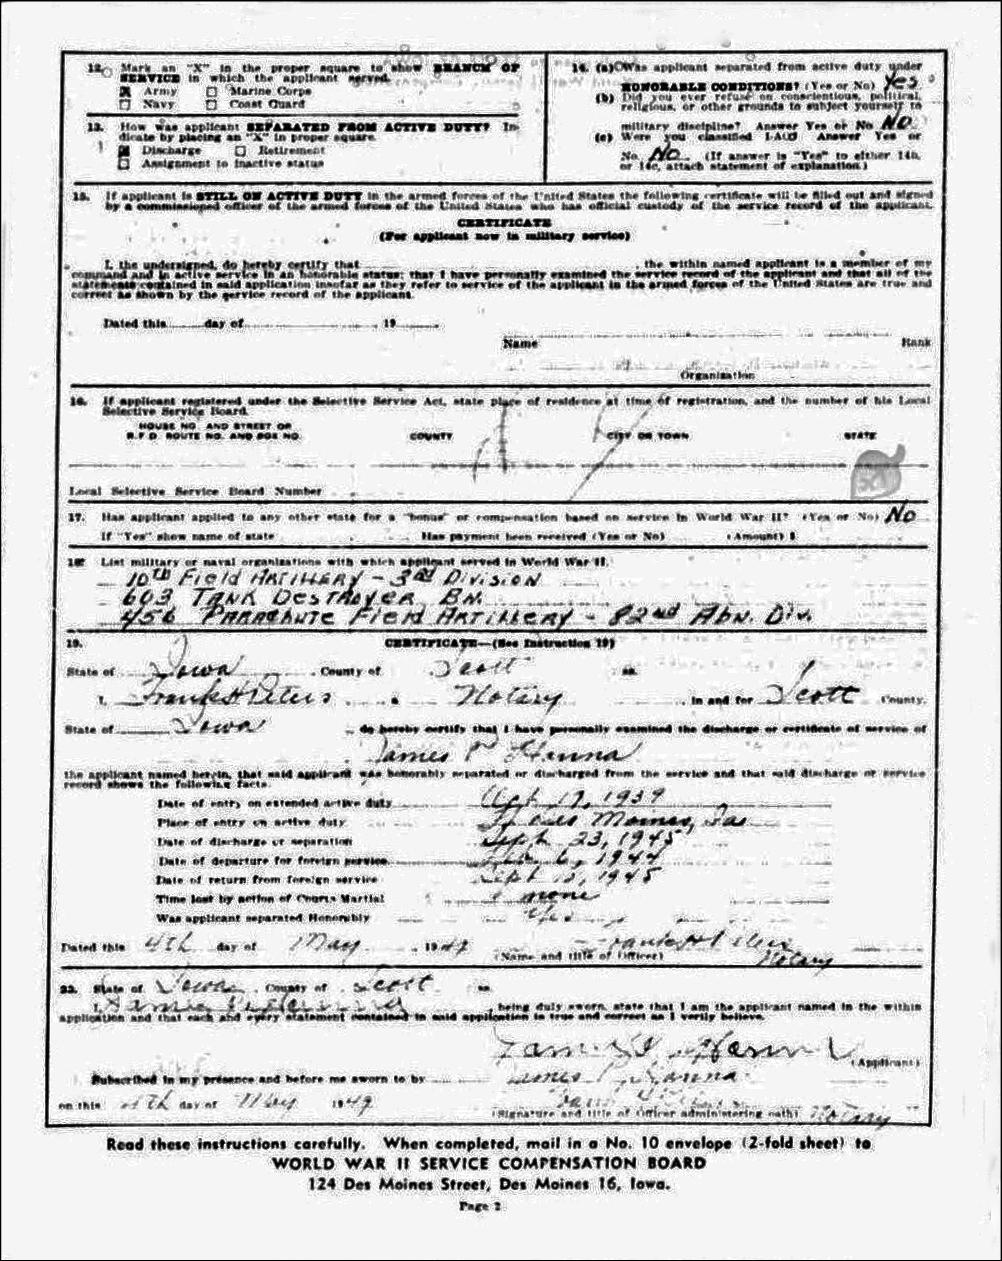 12. Mark an "X" in the proper square to show BRANCH OF
SERVICE in which the applicant served.
X Army ☐ Marine Corps
☐ Navy ☐ Coast Guard
13. How was applicant SEPARATED FROM ACTIVE DUTY? In-
dicate by placing an "X" in proper square.
X Discharge ☐ Retirement
☐ Assignment to inactive status
14. (a) Was applicant separated from active duty under
HONORABLE CONDITIONS? (Yes or No) Yes
(b) Did you ever refuse on conscientious, political,
religious, or other grounds to subject yourself to
military discipline? Answer Yes or No NO
(c) Were you classified I-AO? Answer Yes or
No. NO (If answer is "Yes" to either 14b,
or 14c, attach statement of explanation.)
15. If applicant is STILL ON ACTIVE DUTY in the armed forces of the United States the following certificate will be filled out and signed
by a commissioned officer of the armed forces of the United States who has official custody of the service record of the applicant.
CERTIFICATE
(For applicant now in military service)
I, the undersigned, do hereby certify that , the within named applicant is a member of my
command and in active service in an honorable status; that I have personally examined the service record of the applicant and that all of the
statements contained in said application insofar as they refer to service of the applicant in the armed forces of the United States are true and
correct as shown by the service record of the applicant.
Dated this day of , 19
Name Rank
Organization
16. If applicant registered under the Selective Service Act, state place of residence at time of registration, and the number of his Local
Selective Service Board.
HOUSE NO. AND STREET OR
R.F.D. ROUTE NO. AND BOX NO. COUNTY CITY OR TOWN STATE
Local Selective Service Board Number
17. Has applicant applied to any other state for a "bonus" or compensation based on service in World War II? (Yes or No) No
If "Yes" show name of state Has payment been received (Yes or No) (Amount) $
18. List military or naval organizations with which applicant served in World War II.
10TH FIELD ARTILLERY - 3RD DIVISION
603 TANK DESTROYER BN.
456 PARACHUTE FIELD ARTILLERY - 82nd ABN. DIV.
19. CERTIFICATE—(See Instruction 19)
State of Iowa , County of Scott ss.
I, Frank H Peters , a Notary in and for Scott County,
State of Iowa , do hereby certify that I have personally examined the discharge or certificate of service of
James P Hanna
the applicant named herein, that said applicant was honorably separated or discharged from the service and that said discharge or service
record shows the following facts.
Date of entry on extended active duty 17, 1939
Place of entry on active duty Des Moines, Ia
Date of discharge or separation Sept 23, 1945
Date of departure for foreign service 6, 1944
Date of return from foreign service Sept 15, 1945
Time lost by action of Courts Martial none
Was applicant separated Honorably Yes
Dated this 4th day of May , 1949 Frank H Peters
(Name and title of Officer) Notary
State of Iowa , County of Scott ss.
I, being duly sworn, state that I am the applicant named in the within
application and that each and every statement contained in said application is true and correct as I verily believe.
James P. Hanna (Applicant)
Subscribed in my presence and before me sworn to by James P. Hanna
on this 4th day of May 1949
(Signature and title of Officer administering oath) Notary
Read these instructions carefully. When completed, mail in a No. 10 envelope (2-fold sheet) to
WORLD WAR II SERVICE COMPENSATION BOARD
124 Des Moines Street, Des Moines 16, Iowa.
Page 2